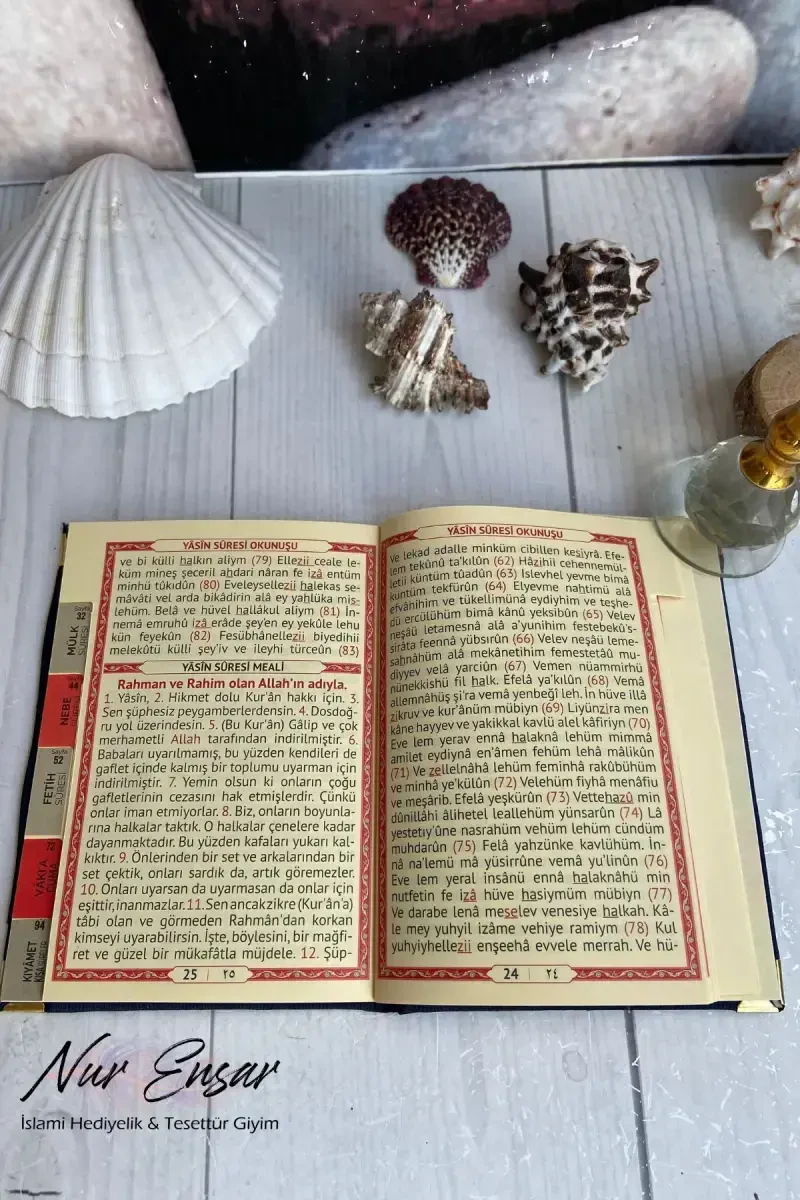 YÂSÎN SÛRESİ OKUNUŞU
ve lekad adalle minküm cibillen kesiyrâ. Efe-
lem tekûnû ta'kılûn (62) Hâzihii cehennemül-
letii küntüm tûadûn (63) Islevhel yevme bimâ
küntüm tekfürûn (64) Elyevme nahtimü alâ
efvâhihim ve tükellimünâ eydiyhim ve teşhe-
dü ercülühüm bimâ kânû yeksibûn (65) Velev
neşâü letamesnâ alâ a'yunihim festebekû's-
sırâta feennâ yübsırûn (66) Velev neşâü leme-
sahnâhüm alâ mekânetihim femestetâû mu-
diyyev velâ yarciûn (67) Vemen nüammirhü
nünekkishü fil halk. Efelâ ya'kılûn (68) Vemâ
allemnâhüş şi'ra vemâ yenbeğî leh. İn hüve illâ
zikruv ve kur'ânüm mübiyn (69) Liyünzira men
kâne hayyev ve yakikkal kavlü alel kâfiriyn (70)
Eve lem yerav ennâ halaknâ lehüm mimmâ
amilet eydiynâ en'âmen fehüm lehâ mâlikûn
(71) Ve zellelnâhâ lehüm feminhâ rakûbühüm
ve minhâ ye'külûn (72) Velehüm fiyhâ menâfiu
ve meşârib. Efelâ yeşkürûn (73) Vettehazû min
dûnillâhi âlihetel leallehüm yünsarûn (74) Lâ
yestetıy'ûne nasrahüm vehüm lehüm cündüm
muhdarûn (75) Felâ yahzünke kavlühüm. İn-
nâ na'lemü mâ yüsirrûne vemâ yu'linûn (76)
Eve lem yeral insânü ennâ halaknâhü min
nutfetin fe izâ hüve hasiymüm mübiyn (77)
Ve darabe lenâ meselev venesiye halkah. Kâ-
le mey yuhyil izâme vehiye ramiym (78) Kul
yuhyiyhellezii enşeehâ evvele merrah. Ve hü-
24 ٢٤
YÂSÎN SÛRESİ OKUNUŞU
ve bi külli halkın aliym (79) Ellezii ceale le-
küm mineş şeceril ahdari nâran fe izâ entüm
minhü tûkıdûn (80) Eveleysellezii halekas se-
mâvâti vel arda bikâdirin alâ ey yahlüka mis-
lehüm. Belâ ve hüvel hallâkul aliym (81) İn-
nemâ emruhû izâ erâde şey'en ey yekûle lehu
kün feyekûn (82) Fesübhânellezii biyedihii
melekûtü külli şey'iv ve ileyhi türceûn (83)
YÂSÎN SÛRESİ MEALİ
Rahman ve Rahim olan Allah'ın adıyla.
1. Yâsîn, 2. Hikmet dolu Kur'ân hakkı için. 3.
Sen şüphesiz peygamberlerdensin. 4. Dosdoğ-
ru yol üzerindesin. 5. (Bu Kur'ân) Gâlip ve çok
merhametli Allah tarafından indirilmiştir. 6.
Babaları uyarılmamış, bu yüzden kendileri de
gaflet içinde kalmış bir toplumu uyarman için
indirilmiştir. 7. Yemin olsun ki onların çoğu
gafletlerinin cezasını hak etmişlerdir. Çünkü
onlar iman etmiyorlar. 8. Biz, onların boyunla-
rına halkalar taktık. O halkalar çenelere kadar
dayanmaktadır. Bu yüzden kafaları yukarı kal-
kıktır. 9. Önlerinden bir set ve arkalarından bir
set çektik, onları sardık da, artık göremezler.
10. Onları uyarsan da uyarmasan da onlar için
eşittir, inanmazlar. 11. Sen ancak zikre (Kur'ân'a)
tâbi olan ve görmeden Rahmân'dan korkan
kimseyi uyarabilirsin. İşte, böylesini, bir mağfi-
ret ve güzel bir mükafâtla müjdele. 12. Şüp-
25 ٢٥
Sayfa
32
MÜLK
SÛRESİ
44
NEBE
SÛRESİ
Sayfa
52
FETİH
SÛRESİ
VAKIA
CUMA
94
KIYAMET
Nur Ensar
İslami Hediyelik & Tesettür Giyim